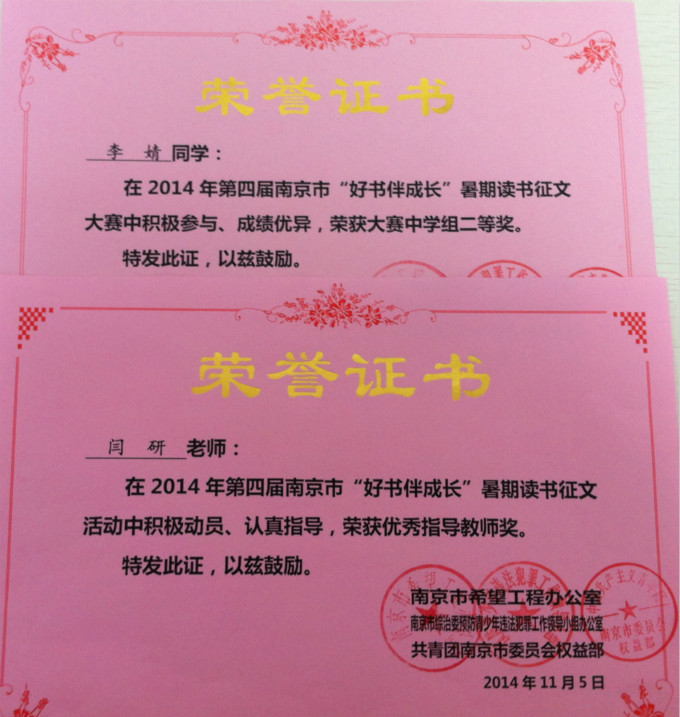 荣誉证书
李 婧 同学：
在2014年第四届南京市“好书伴成长”暑期读书征文
大赛中积极参与、成绩优异，荣获大赛中学组二等奖。
特发此证，以兹鼓励。
荣誉证书
闫 研 老师：
在2014年第四届南京市“好书伴成长”暑期读书征文
活动中积极动员、认真指导，荣获优秀指导教师奖。
特发此证，以兹鼓励。
南京市希望工程办公室
南京市综治委预防青少年违法犯罪工作领导小组办公室
共青团南京市委员会权益部
2014年11月5日
南京市委员会
权益部